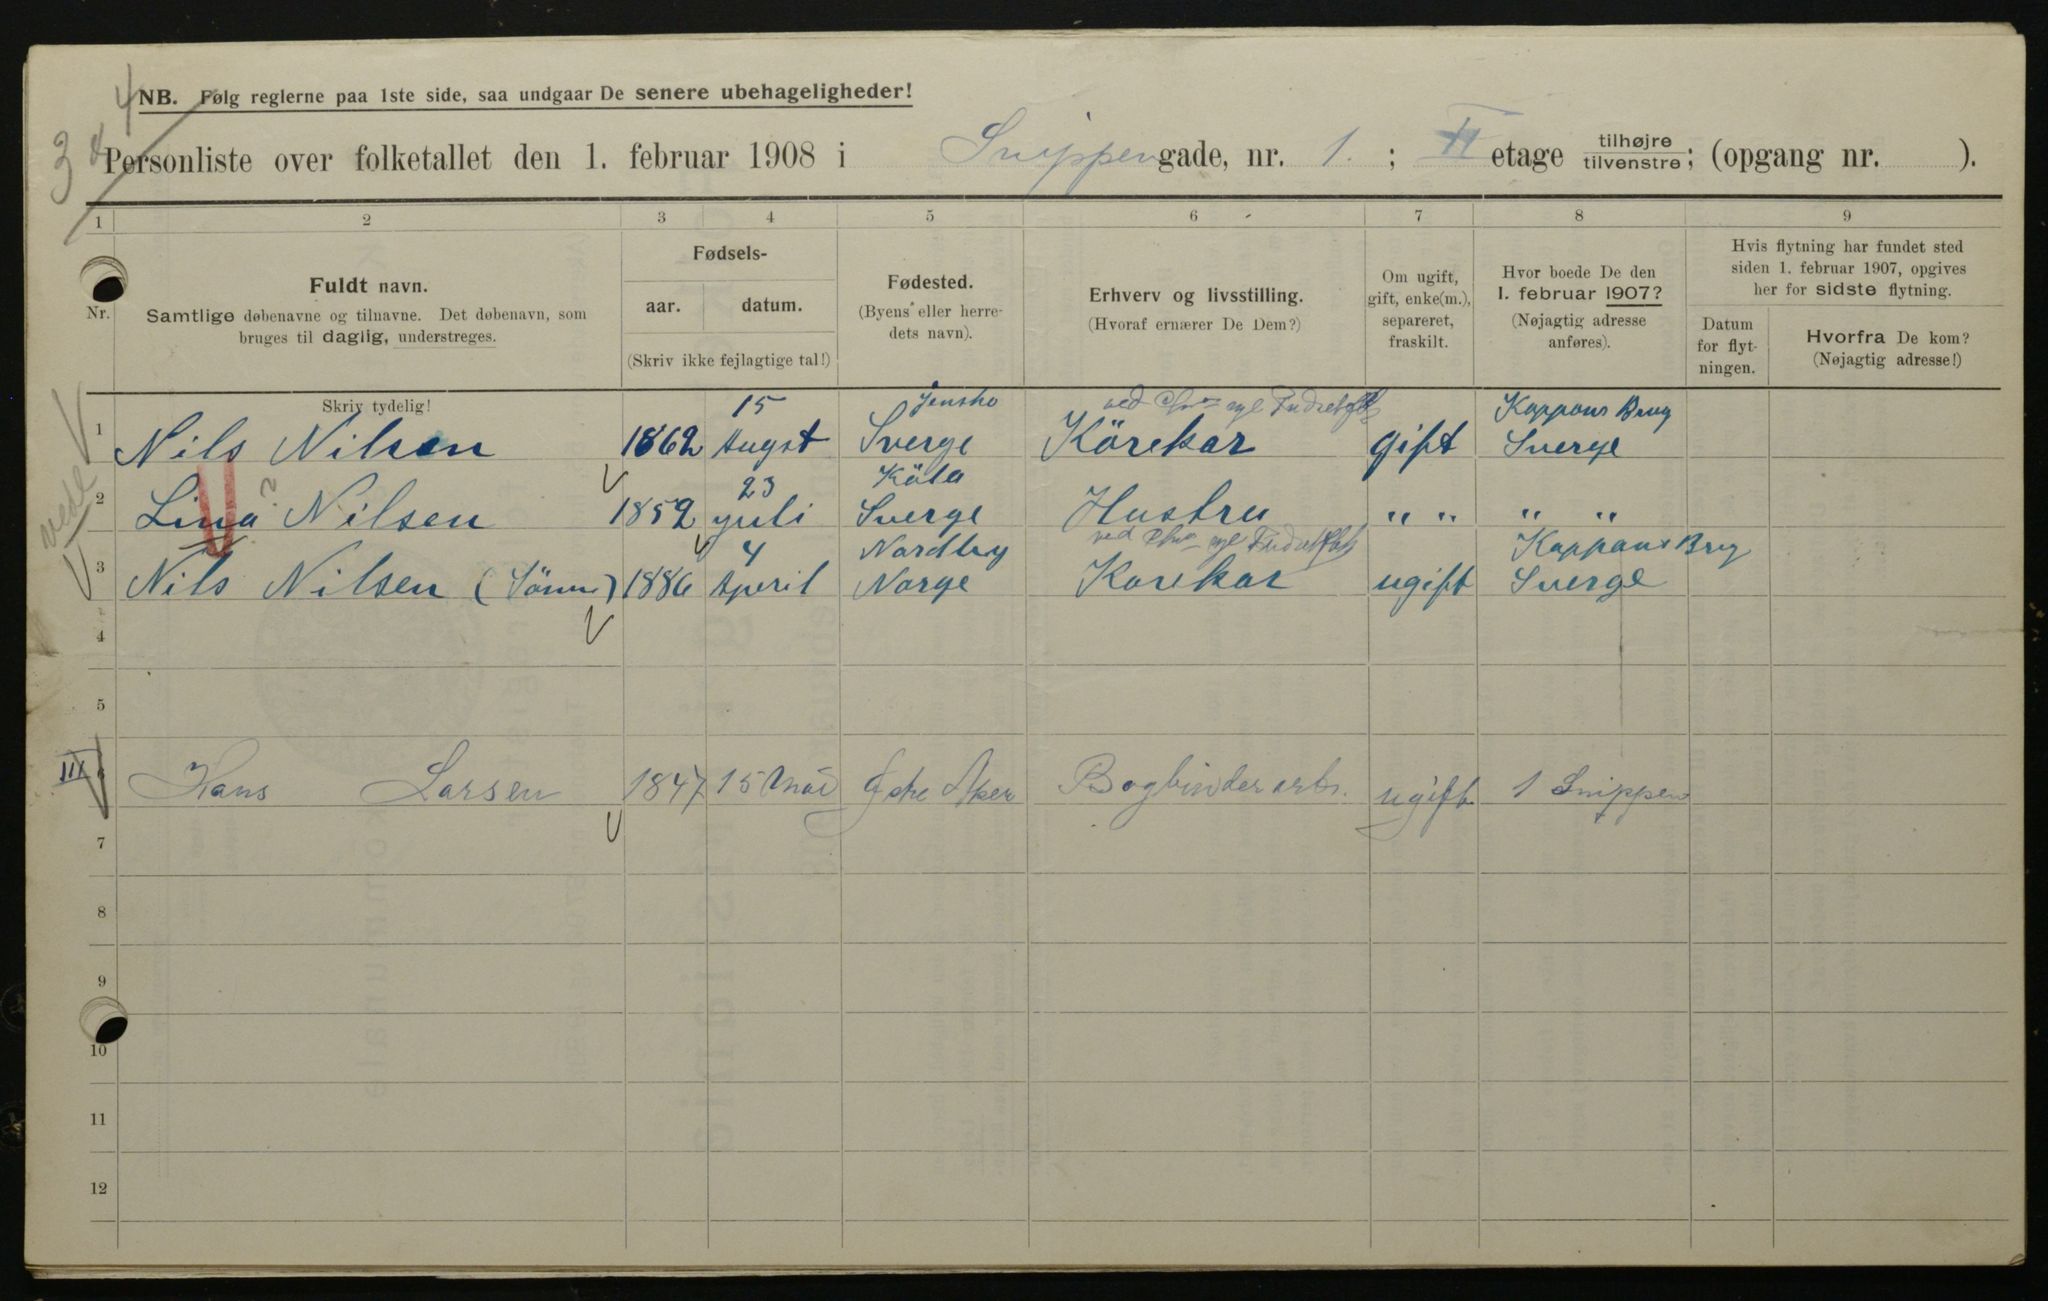 4
NB. Følg reglerne paa 1ste side, saa undgaar De senere ubehageligheder!
3
Personliste over folketallet den 1. februar 1908 i Snippengade, nr. 1. ; II etage tilhøjre tilvenstre; (opgang nr. ).
1 2 3 4 5 6 7 8 9
Nr.
Fuldt navn.
Samtlige døbenavne og tilnavne. Det døbenavn, som
bruges til daglig, understreges.
Skriv tydelig!
Fødsels-
aar. datum.
(Skriv ikke fejlagtige tal!)
Fødested.
(Byens eller herre-
dets navn).
Erhverv og livsstilling.
(Hvoraf ernærer De Dem?)
Om ugift,
gift, enke(m.),
separeret,
fraskilt.
Hvor boede De den
1. februar 1907?
(Nøjagtig adresse
anføres).
Hvis flytning har fundet sted
siden 1. februar 1907, opgives
her for sidste flytning.
Datum
for flyt-
ningen.
Hvorfra De kom?
(Nøjagtig adresse!)
15 ved
1 Nils Nilsen 1862 Augst Sverge Körekar gift Sverge
23 Köla
2 Lina ? Nilsen 1852 juli Sverge Hustru " " " "
4 Nordby ved
3 Nils Nilsen (Sönn) 1886 Aperil Norge Korekar ugift Sverge
4
5
III 6 Hans Larsen 1847 15 Mai Østre Aker Bogbinderarb. ugift 1 Snippen
7
8
9
10
11
12